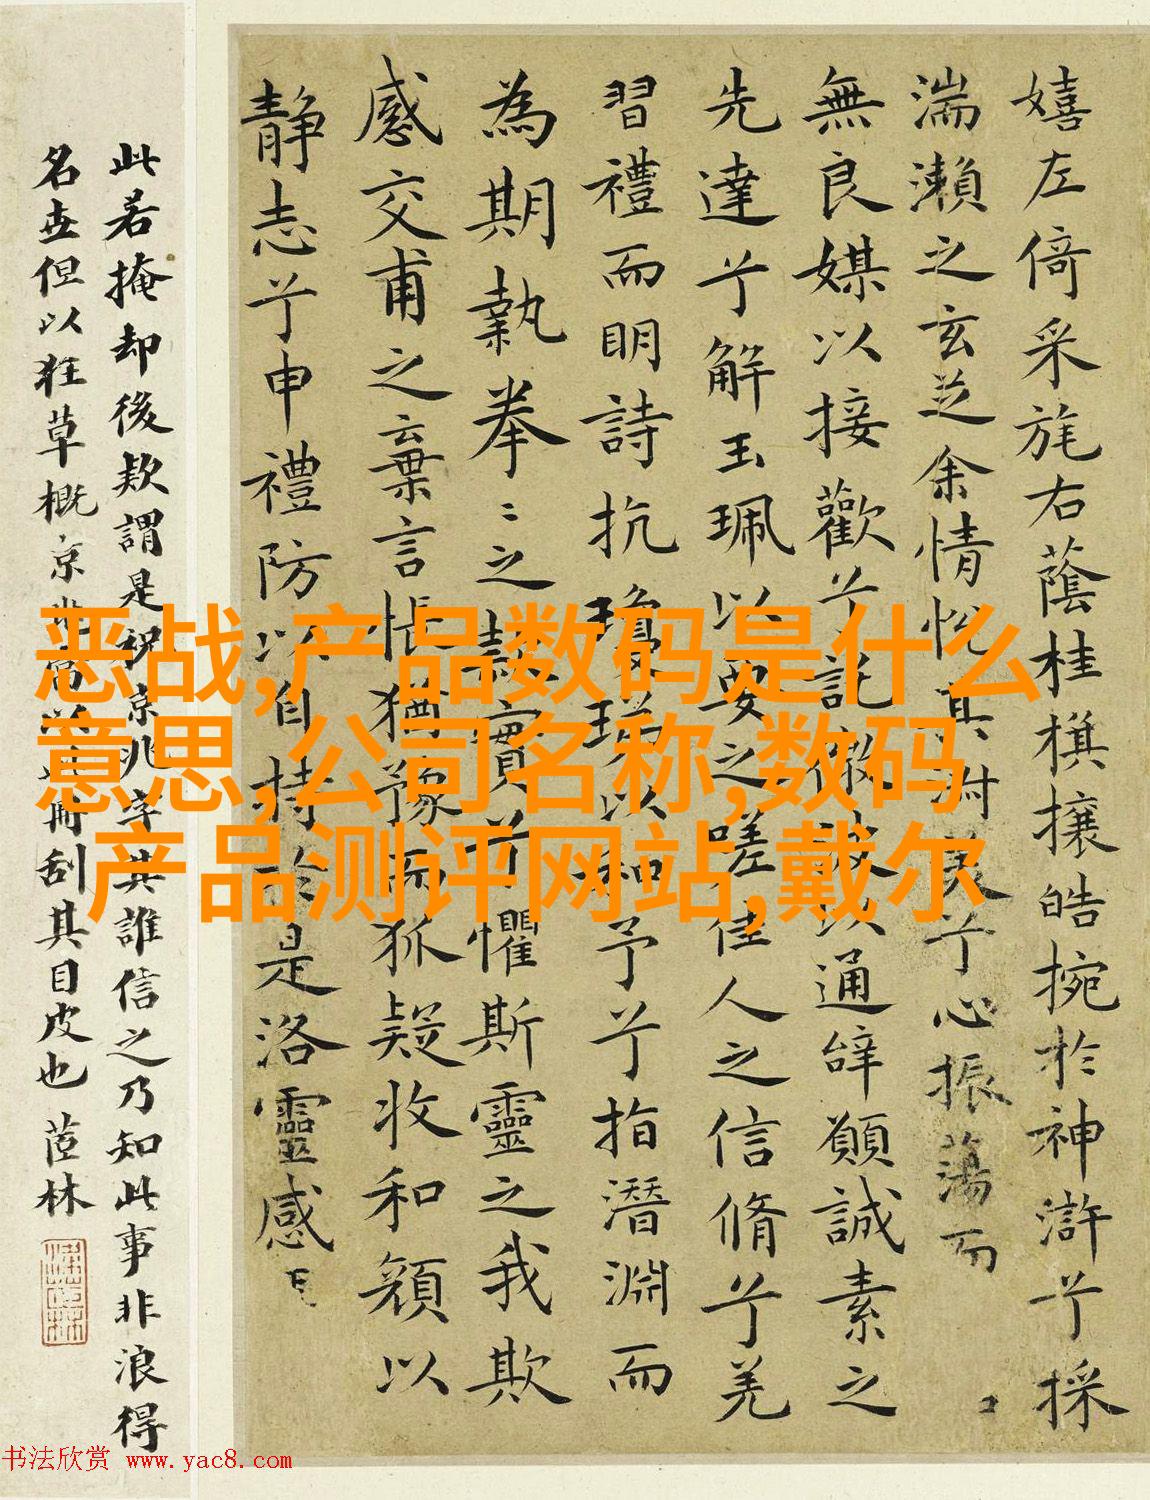 嬉左倚采旄右蔭桂棋攘皓捥於神滸兮採
湍瀨之玄芝余情悅其淑美兮心振蕩而
無良媒以接歡兮託微波以通辭願誠素之
先達兮解玉珮以要之嗟佳人之信脩兮羌
習禮而明詩抗瓊珶以和予兮兮指潛淵而
為期執拳〻之款實兮懼斯靈之我欺
感交甫之棄言悵猶豫而狐疑收和顏以
靜志兮申禮防以自持於是洛靈感
此若掩却後欵謂是祝京兆字其誰信之乃知此事非浪得
名世但以狂草概京兆
冊刮其目皮也 茝林
恶战,产品数码是什么
意思,公司名称,数码
产品测评网站,戴尔
书法欣赏 www.yac8.com